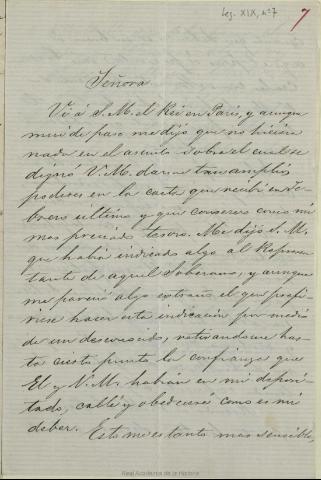 Leg. XIX, nº 7
7
Señora
Vi á S. M. el Rei en París, y aunque
mui de paso me dijo que no hiciera
nada en el asunto sobre el cual se
dignó V. M. darme tan amplios
poderes en la carta que recibí en Fe-
brero ultimo y que conservo como mi
mas preciado tesoro. Me dijo S. M.
que habia indicado algo al Represen-
tante de aquel Soberano, y aunque
me pareció algo extraño el que prefi-
riese hacer esta indicacion por medio
de un desconocido, retirandome has-
ta cierto punto la confianza que
El y V. M. habian en mi deposi-
tado, callé y obedeceré como es mi
deber. Esto me es tanto mas sensible,
Real Academia de la Historia